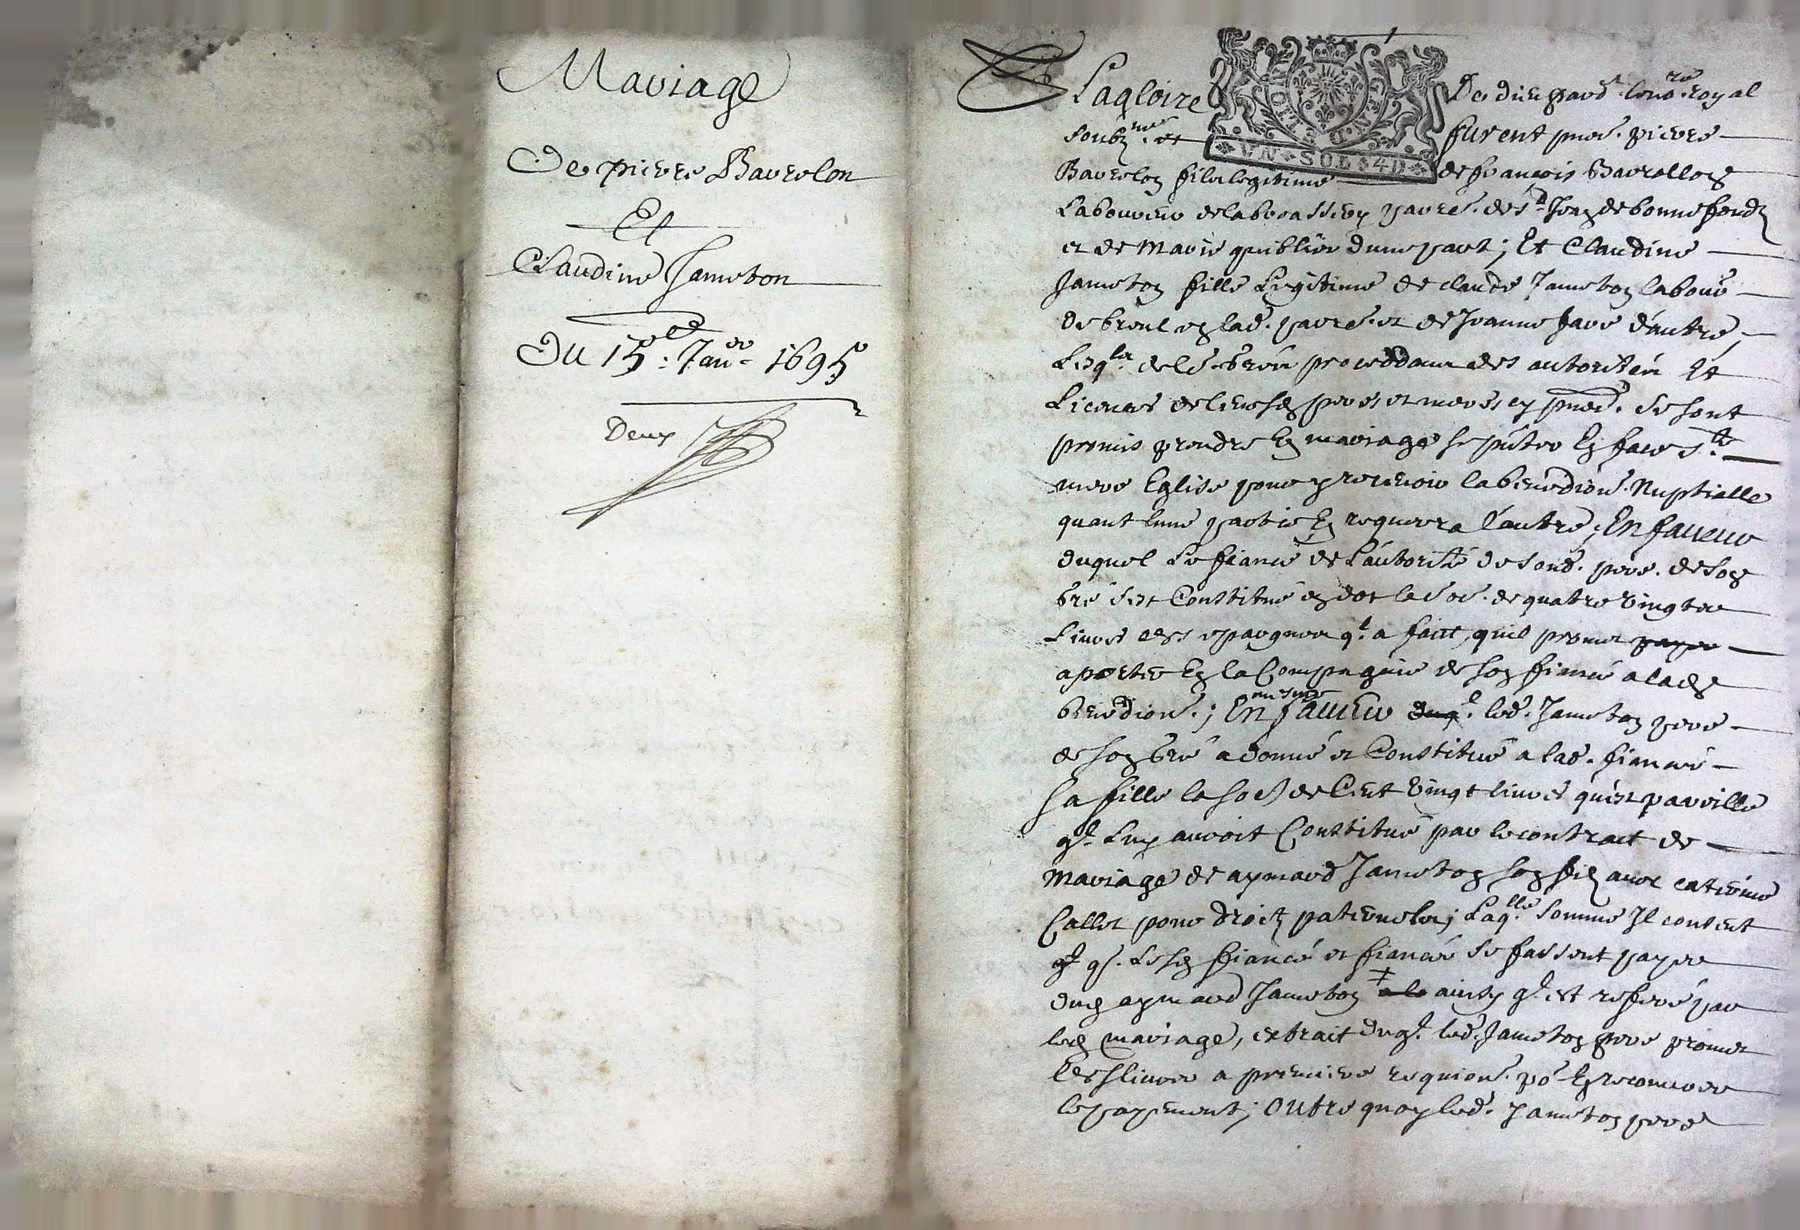 Mariage
De pierre Barrelon
Et
Claudine Jameton
Du 15e. Janer. 1695
Deux
A Lagloire De dieu pard. le nore. royal
soubzne. et furent pnts. pierre
Barrelon filz legitime de françois Barrellon
Laboureur de la brassery parre. de St. Jean de bonnefondz
et de Marie quiblier d'une part; Et Claudine
Jameton fille Legitime de claude Jameton labour
de breul en lad. parre. et de Jeanne faure d'autre,
Lesqls. de le. gré procedans des autorités Et
Licences de leursd peres et meres cy pnts. se sont
promis prendre En mariage se pnter En face Ste.
mere Eglise pour y recevoir la benedion. Nuptialle
quant lune partie En requerra l'autre; En faveur
duquel Le fiancé de L'autorité de sond. pere. de son
gré s'est Constitué en dot la some. de quatre vingtz
Livres de ses epargnes ql. a faict, quil promet payer
aporter En la Compagnie de son fiancée a lade
benedion.; En mesme faveur duql. led. Jameton pere
de son gré a donné et Constitué a lad. fiancée
sa fille la some de Cent vingt livres quest pareille
ql. Luy avoit Constitué par le contract de
Mariage de aymard Jameton son filz avec caterine
Callet pour droictz paternelz; Laqlle. somme Il consent
ql. qs. Lesd fiancé et fiancée se fassent payer
dud aymard Jameton a le ainsy ql. est reservé par
led mariage, extrait duql. led. Jameton pere promet
Les livrer a premiere requion. po. En recouvrer
le payement; Outre quoy led. Jameton pere
UN SOL 4D